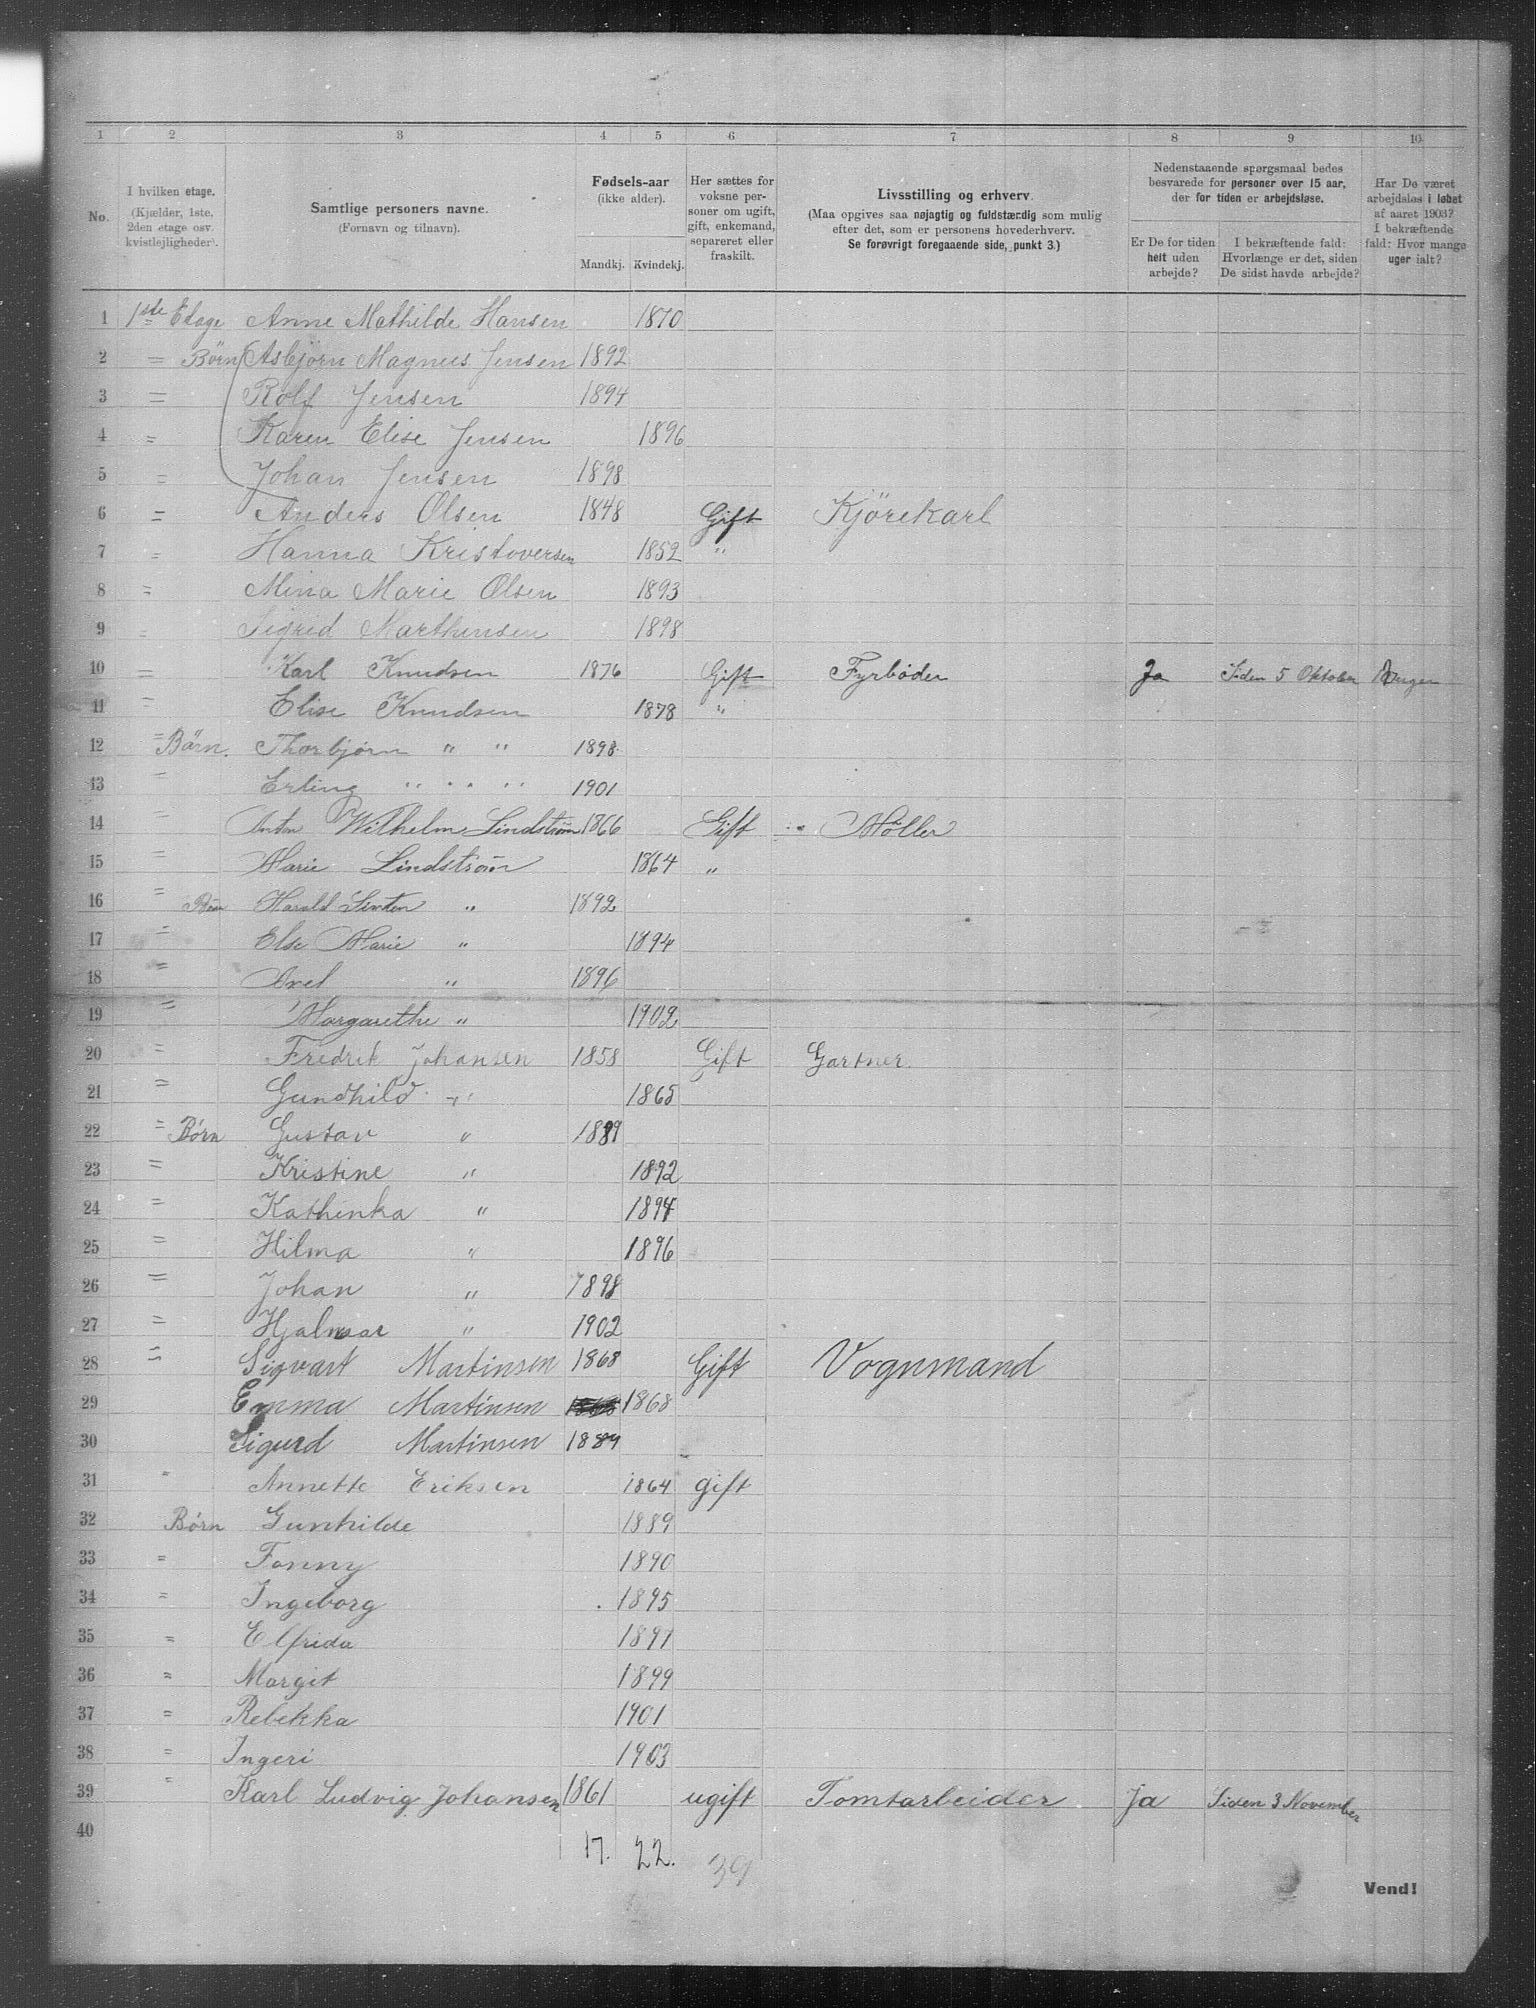 1 2 3 4 5 6 7 8 9 10
No.
I hvilken etage.
(Kjælder, 1ste,
2den etage osv.
kvistlejligheder).
Samtlige personers navne.
(Fornavn og tilnavn).
Fødsels-aar
(ikke alder).
Mandkj. Kvindekj.
Her sættes for
voksne per-
soner om ugift,
gift, enkemand,
separeret eller
fraskilt.
Livsstilling og erhverv.
(Maa opgives saa nøjagtig og fuldstærdig som mulig
efter det, som er personens hovederhverv.
Se forøvrigt foregaaende side, punkt 3.)
Nedenstaaende spørgsmaal bedes
besvarede for personer over 15 aar,
der for tiden er arbejdsløse.
Er De for tiden
helt uden
arbejde?
I bekræftende fald:
Hvorlænge er det, siden
De sidst havde arbejde?
Har De været
arbejdsløs i løbet
af aaret 1903?
I bekræftende
fald: Hvor mange
uger ialt?
1 1ste Etage Anne Mathilde Hansen 1870
2 = Børn Asbjørn Magnus Jensen 1892
3 = Rolf Jensen 1894
4 = Karen Elise Jensen 1896
5 = Johan Jensen 1898
6 = Anders Olsen 1848 Gift Kjörekarl
7 = Hanna Kristoversen 1852 "
8 = Mina Marie Olsen 1893
9 = Sigrid Marthinsen 1898
10 = Karl Knudsen 1876 Gift Fyrbøder Ja Siden 5 Oktober
11 = Elise Knudsen 1878 "
12 = Börn. Thorbjørn " " 1898
13 = Erling " " " " 1901
14 " Anton Wilhelm Lindström 1866 Gift Möller
15 = Marie Lindström 1864 "
16 = Børn Harald " 1892
17 = Else Marie " 1894
18 = Axel " 1896
19 = Margarethe " 1902
20 = Fredrik Johansen 1858 Gift Gartner.
21 = Gundhild " 1865
22 = Børn Gustav " 1889
23 = Kristine " 1892
24 = Kathinka " 1894
25 = Hilma " 1896
26 = Johan " 1898
27 = Hjalmar " 1902
28 = Sigvart Martinsen 1868 Gift Vognmand
29 Emma Martinsen 1868
30 Sigurd Martinsen 1889
31 " Annette Eriksen 1864 gift
32 Børn Gunhilde 1889
33 " Fanny 1890
34 " Ingeborg 1895
35 " Elfrida 1897
36 " Margit 1899
37 " Rebekka 1901
38 " Ingeri 1903
39 " Karl Ludvig Johansen 1861 ugift Tomtarbeider Ja Siden 3 November
40
17. 22. 39
Vend!